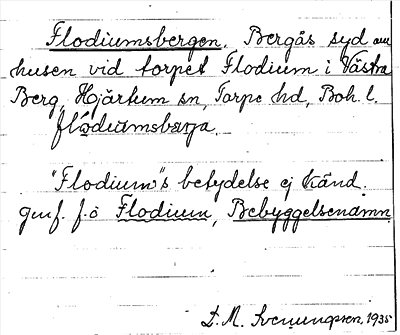 Flodiumsbergen. Bergås syd om
husen vid torpet Flodium i Västra
Berg, Hjärtum sn, Torpe hd, Boh. l.
flòdiumsbærja.
"Flodium"s betydelse ej känd.
Jmf. f.ö Flodium, Bebyggelsenamn
D. M. Svenungsson. 1935